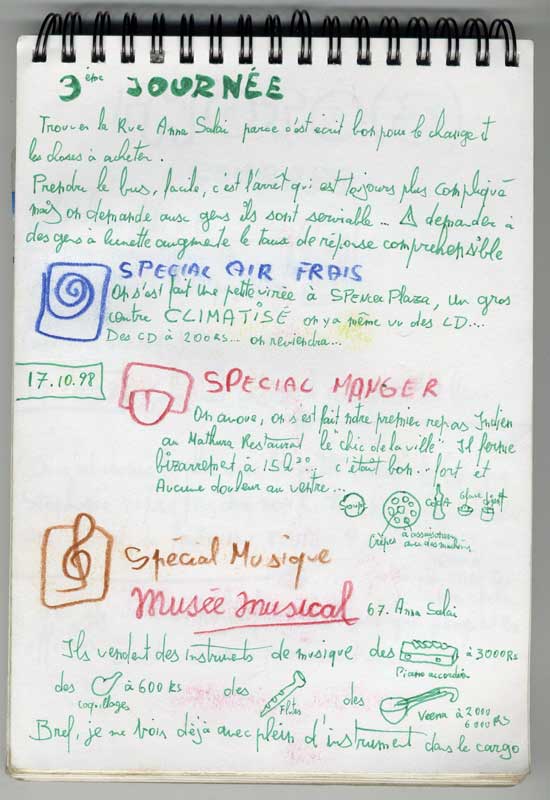 3ème JOURNÉE
Trouver la Rue Anna Salai parce c'est écrit bon pour le change et
les choses à acheter.
Prendre le bus, facile, c'est l'arrêt qui est toujours plus compliqué
mais on demande aux gens ils sont serviable... ⚠ demander à
des gens à lunette augmente le taux de réponse compréhensible
SPECIAL AIR FRAIS
On s'est fait une petite virée à SPENCER PLAZA, un gros
centre CLIMATISÉ on y a même vu des LD....
Des CD à 200RS... on reviendra...
17.10.98
SPECIAL MANGER
On avoue, on s'est fait notre premier repas Indien
au Mathura Restaurant le "chic de la ville" Il ferme
bizarrement à 15h30... c'était bon.. fort et
Aucune douleur au ventre...
Soupe
COCA
Glace
Crêpes à assaisonner
avec des machins
Spécial Musique
Musée musical 67. Anna Salai
Ils vendent des instruments de musique des à 3000RS
Piano accordéon
des à 600 RS des des
coquillages
Flûtes
Veena à 2.000
6.000 RS
Bref, je me vois déjà avec plein d'instrument dans le cargo